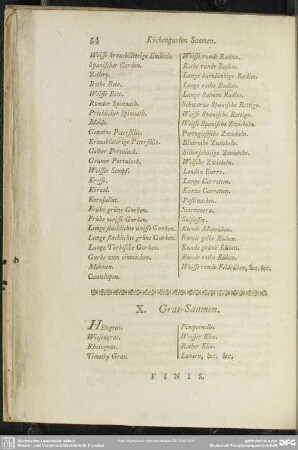 54 Küchengarten Saamen.
Weisse krausblättrige Endivien.
Spanischer Cardon.
Zellery.
Rothe Bete.
Weisse Bete.
Runder Spinath.
Melde.
Gemeine Petersillie.
Krausblättrige Petersillie.
Gelber Portulack.
Grüner Portulack.
Weisser Senf.
Kresse.
Körvel.
Kornsallat.
Frühe grüne Gurken.
Frühe weisse Gurken.
Lange stachlichte weisse Gurken.
Lange stachlichte grüne Gurken.
Lange Türkische Gurken.
Gurke zum einmachen.
Melonen.
Cantelupen.
Weisse runde Radies.
Rothe runde Radies.
Lange rothe Radies.
Lange Salmen Radies.
Schwarze Spanische Rettige.
Weisse Spanische Rettige.
Weisse Spanische Zwiebeln.
Portugiesische Zwiebeln.
Blutrothe Zwiebeln.
Silberfarbige Zwiebeln.
Welsche Zwiebeln.
London
Lange Carrotten.
Kurze Carrotten.
Pastinacken.
Scorzonera.
Runde Mayrüben.
Runde gelbe Rüben.
Runde rothe Rüben.
Weisse runde Feldrüben, &c. &c.
X. Gras-Saamen.
HEugras.
Wiesengras.
Rheingras.
Timothy Gras.
Pimpernelle.
Weisser Klee.
Rother Klee.
Lucern, &c. &c.
FINIS.